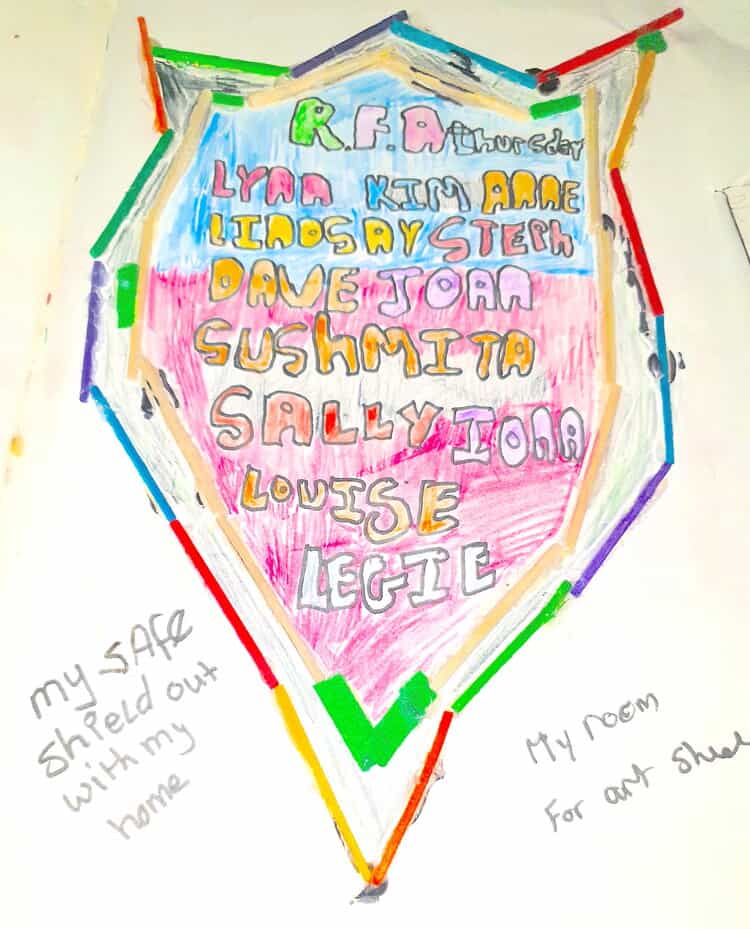 R.F.A thursday
LYNN KIM ANNE
LINDSAY STEPh
DAVE JOAN
SUShMITA
SALLY JOAN
LOUISE
LEGIE
my SAfe
Shield out
with my
home
My room
For art